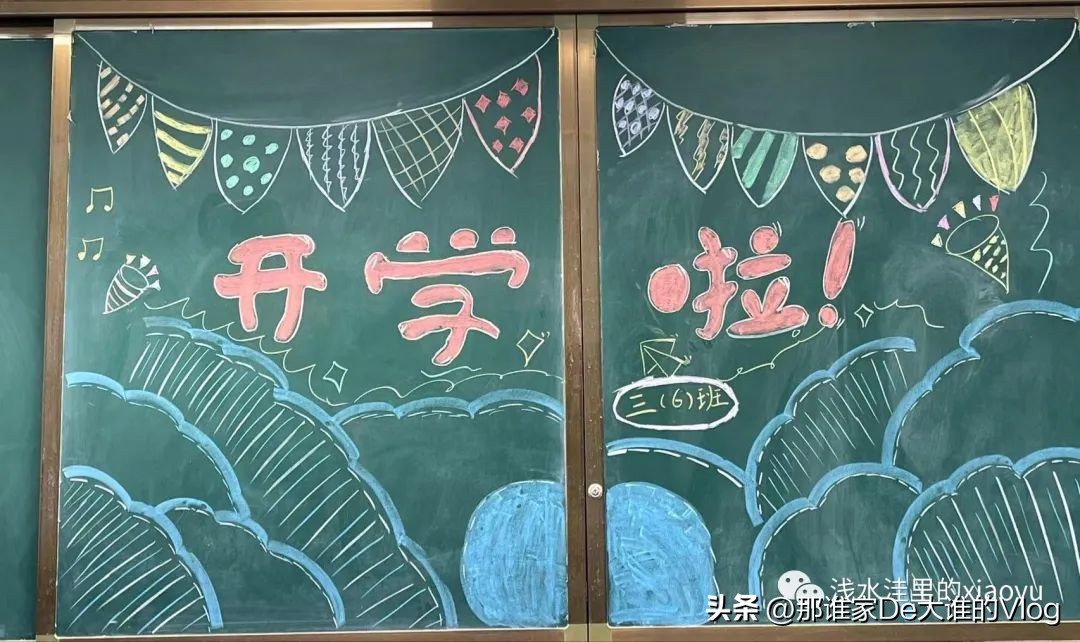 开学啦!
三(6)班
浅水洼里的xiaoyu
头条 @那谁家De大谁的Vlog